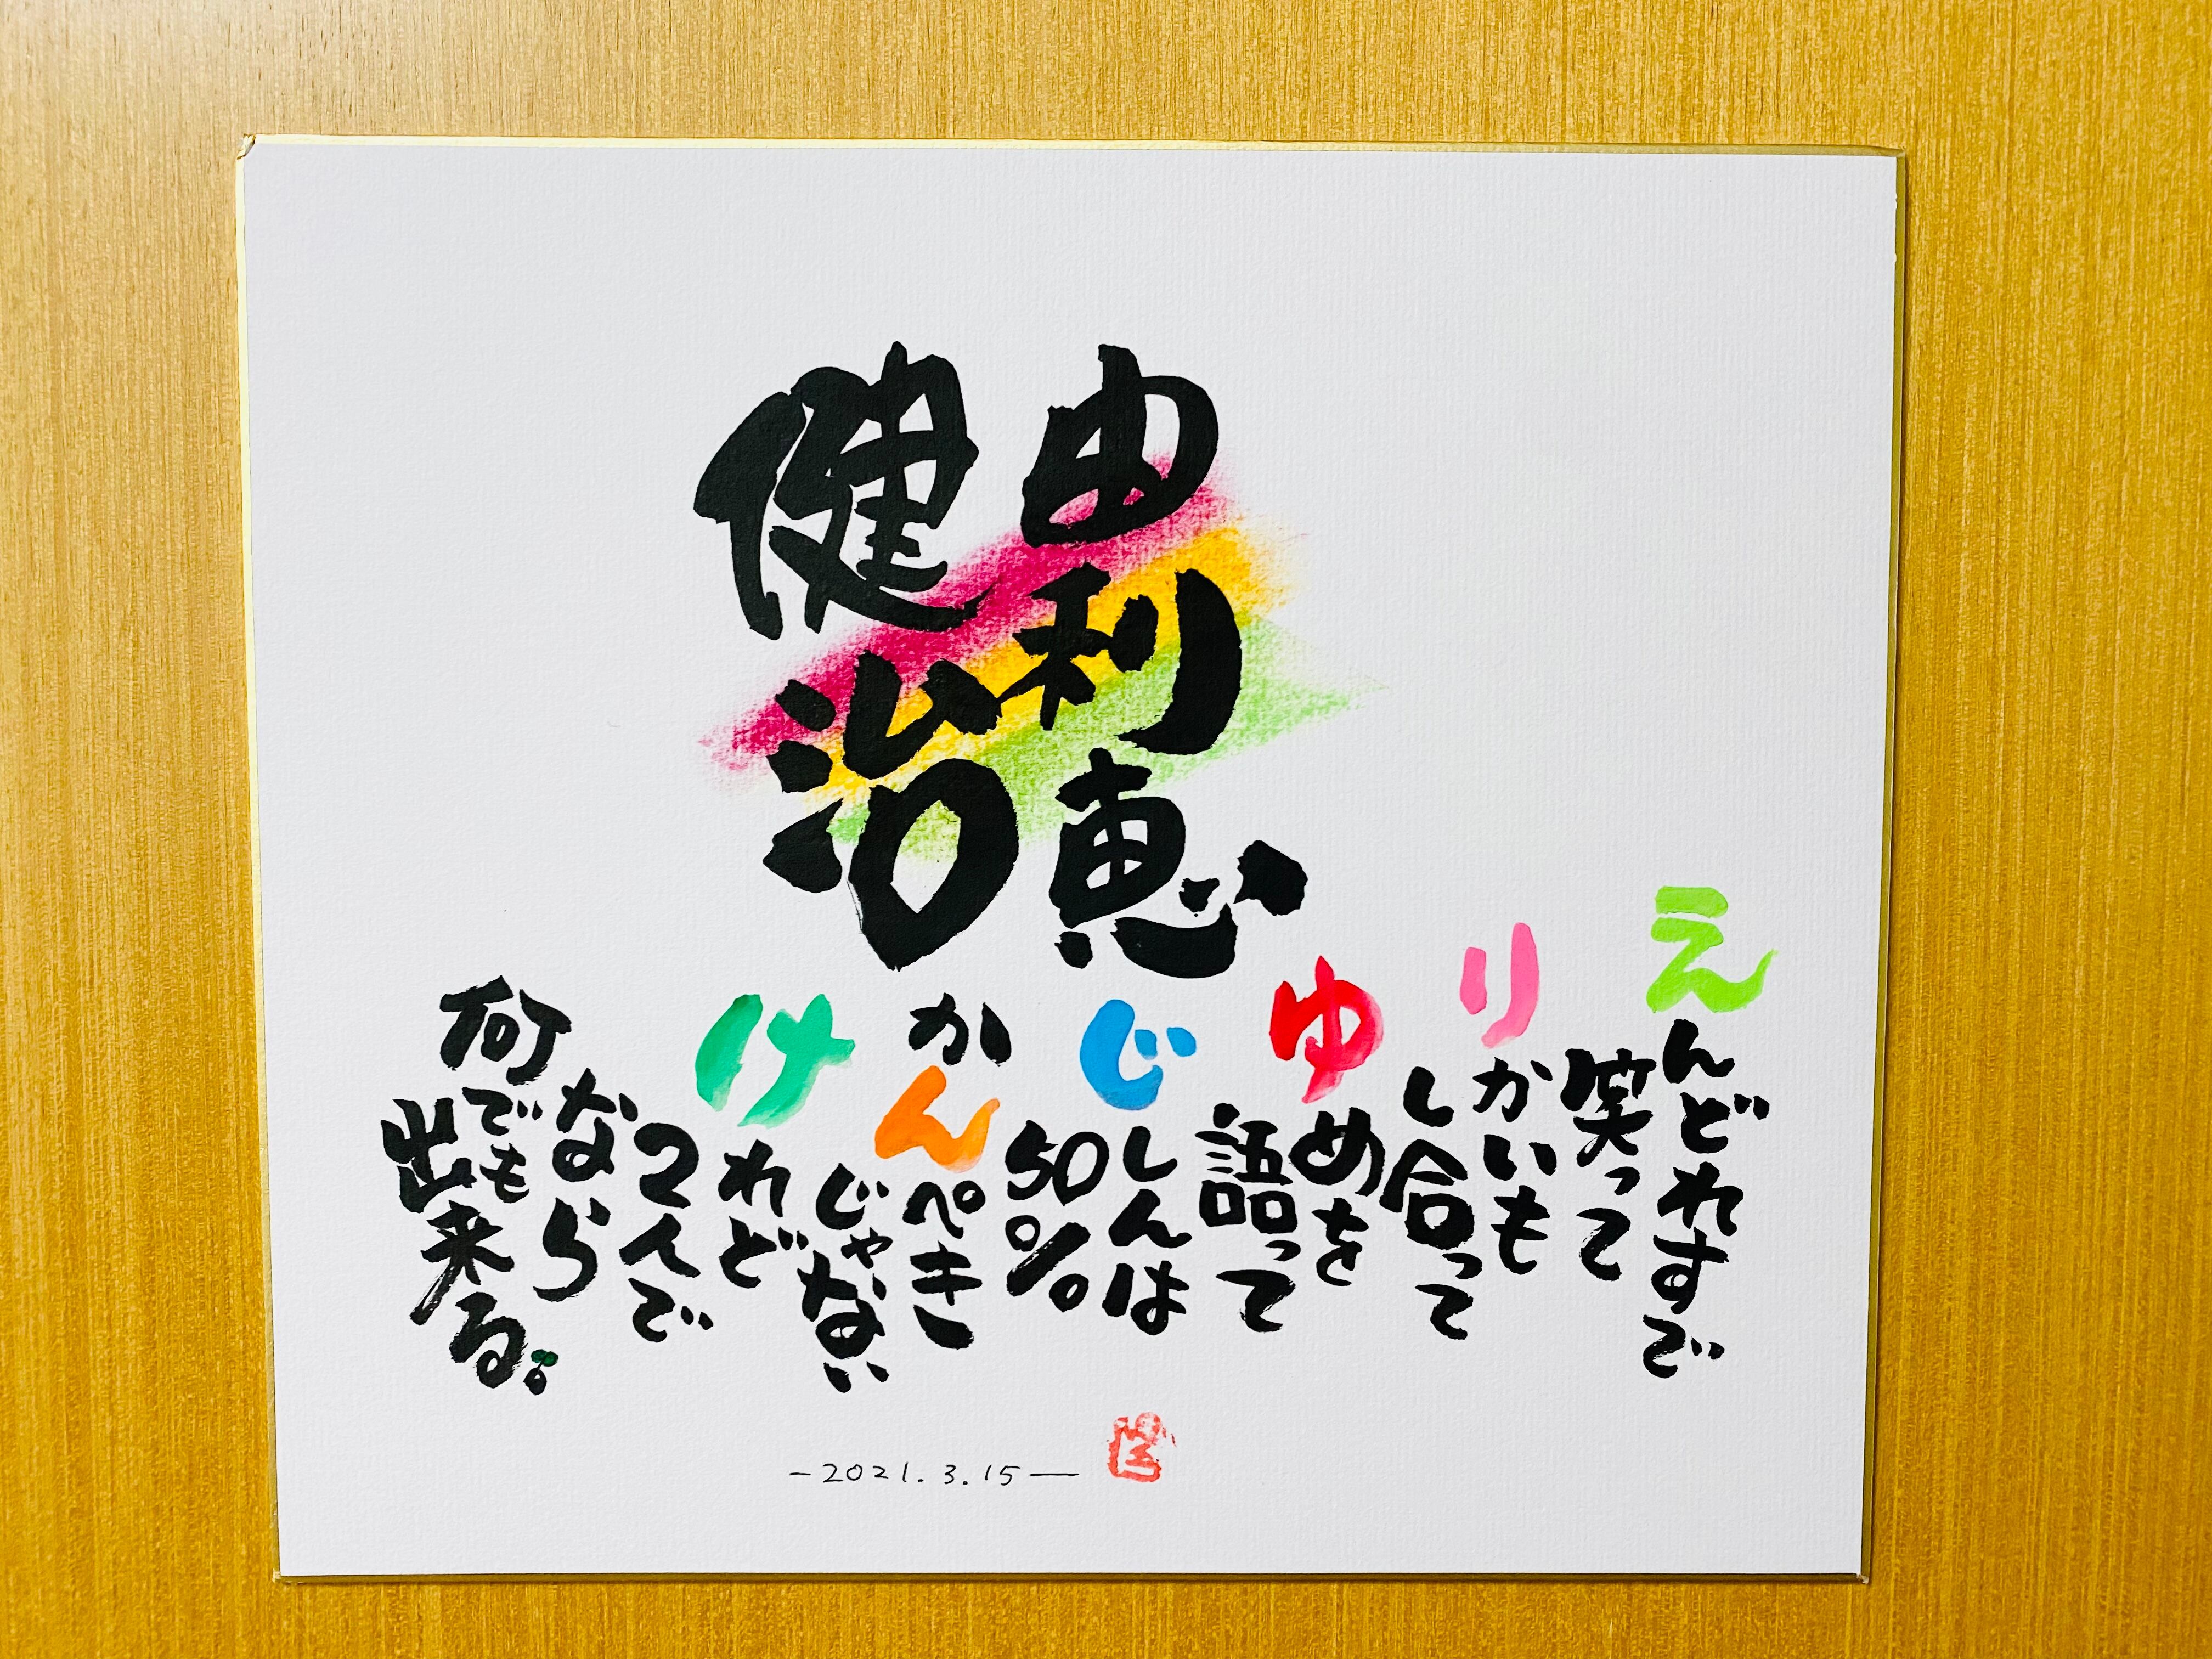 由利恵
健治
えんどれすで
笑って
りかいも
し合って
ゆめを
語って
じしんは
50%
かんぺき
じゃない
けれど
2人で
なら
何でも
出来る。
-2021.3.15-